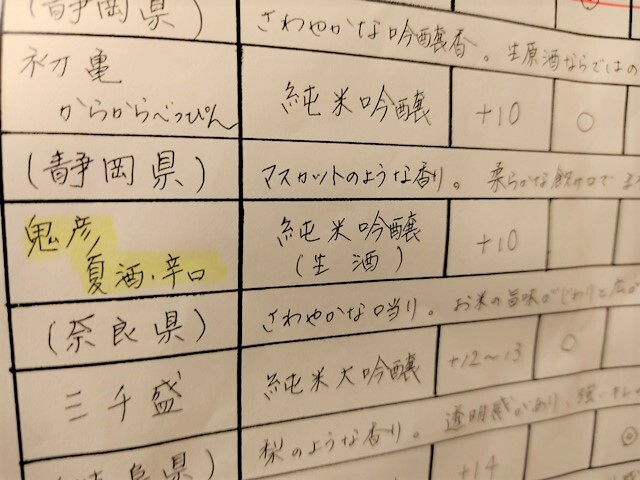 (静岡県)
さわやかな吟醸香。生原酒ならではの
初亀
からからべっぴん
純米吟醸
+10
○
(静岡県)
マスカットのような香り。柔らかな飲み口で
鬼彦
夏酒・辛口
純米吟醸
(生酒)
+10
(奈良県)
さわやかな口当り。お米の旨味がじわりと広が
三千盛
純米大吟醸
+12〜13
○
梨のような香り。透明感があり、強いキレの
県)
+14
◎